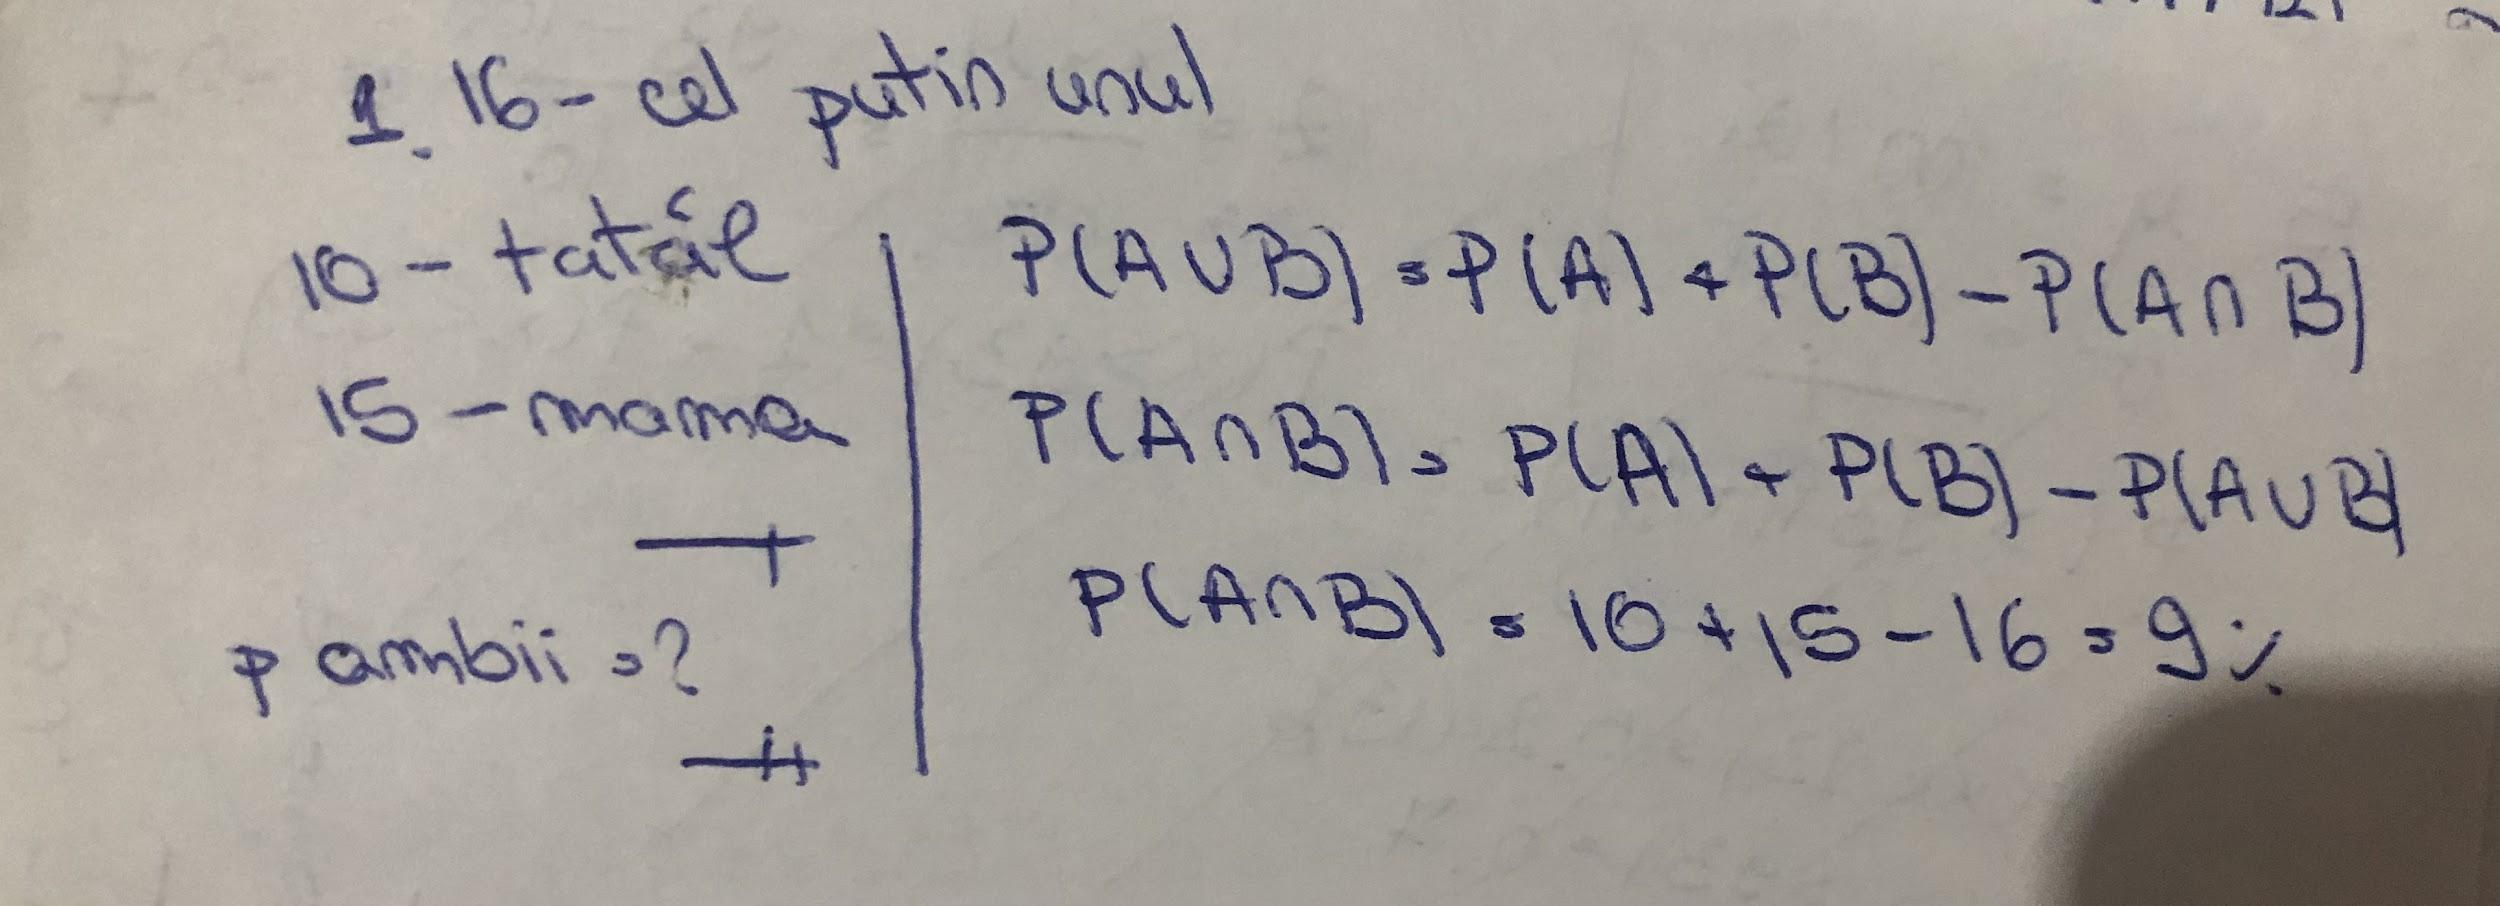 1. 16 - cel putin unul
10 - tatăl
15 - mama
p ambii = ?
P(A∪B) = P(A) + P(B) - P(A∩B)
P(A∩B) = P(A) + P(B) - P(A∪B)
P(A∩B) = 10 + 15 - 16 = 9%